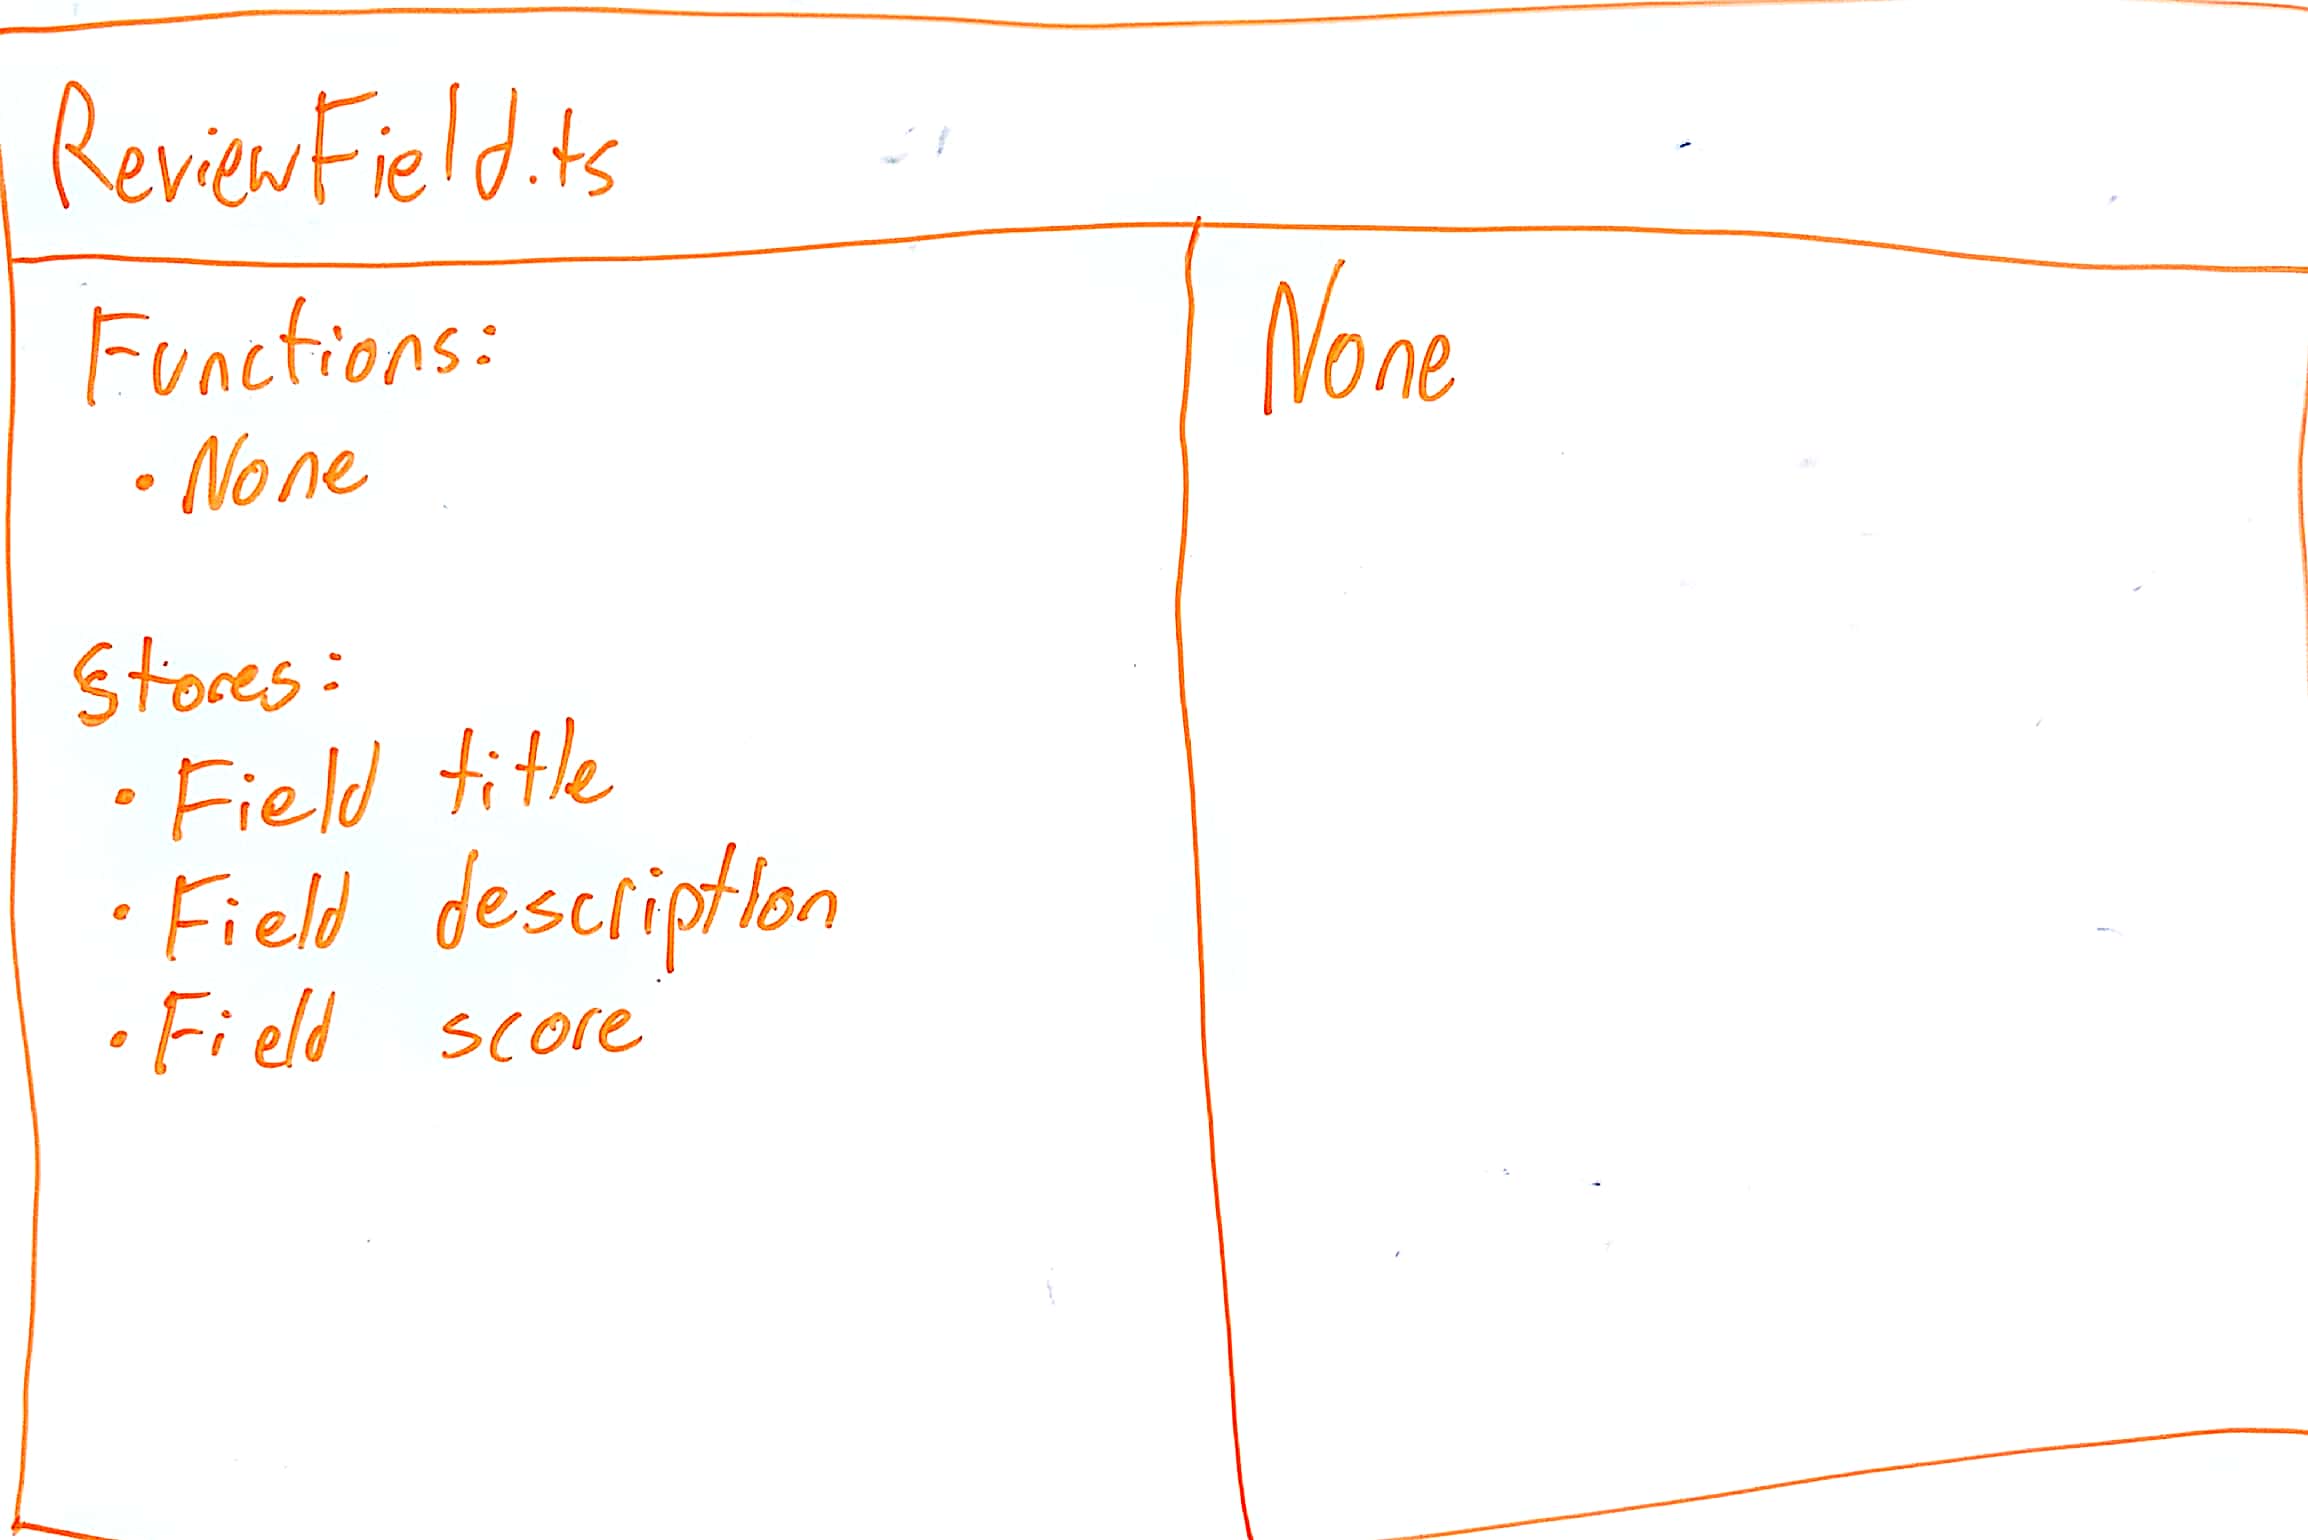 ReviewField.ts
Functions:
• None
Stores:
• Field title
• Field description
• Field score
None